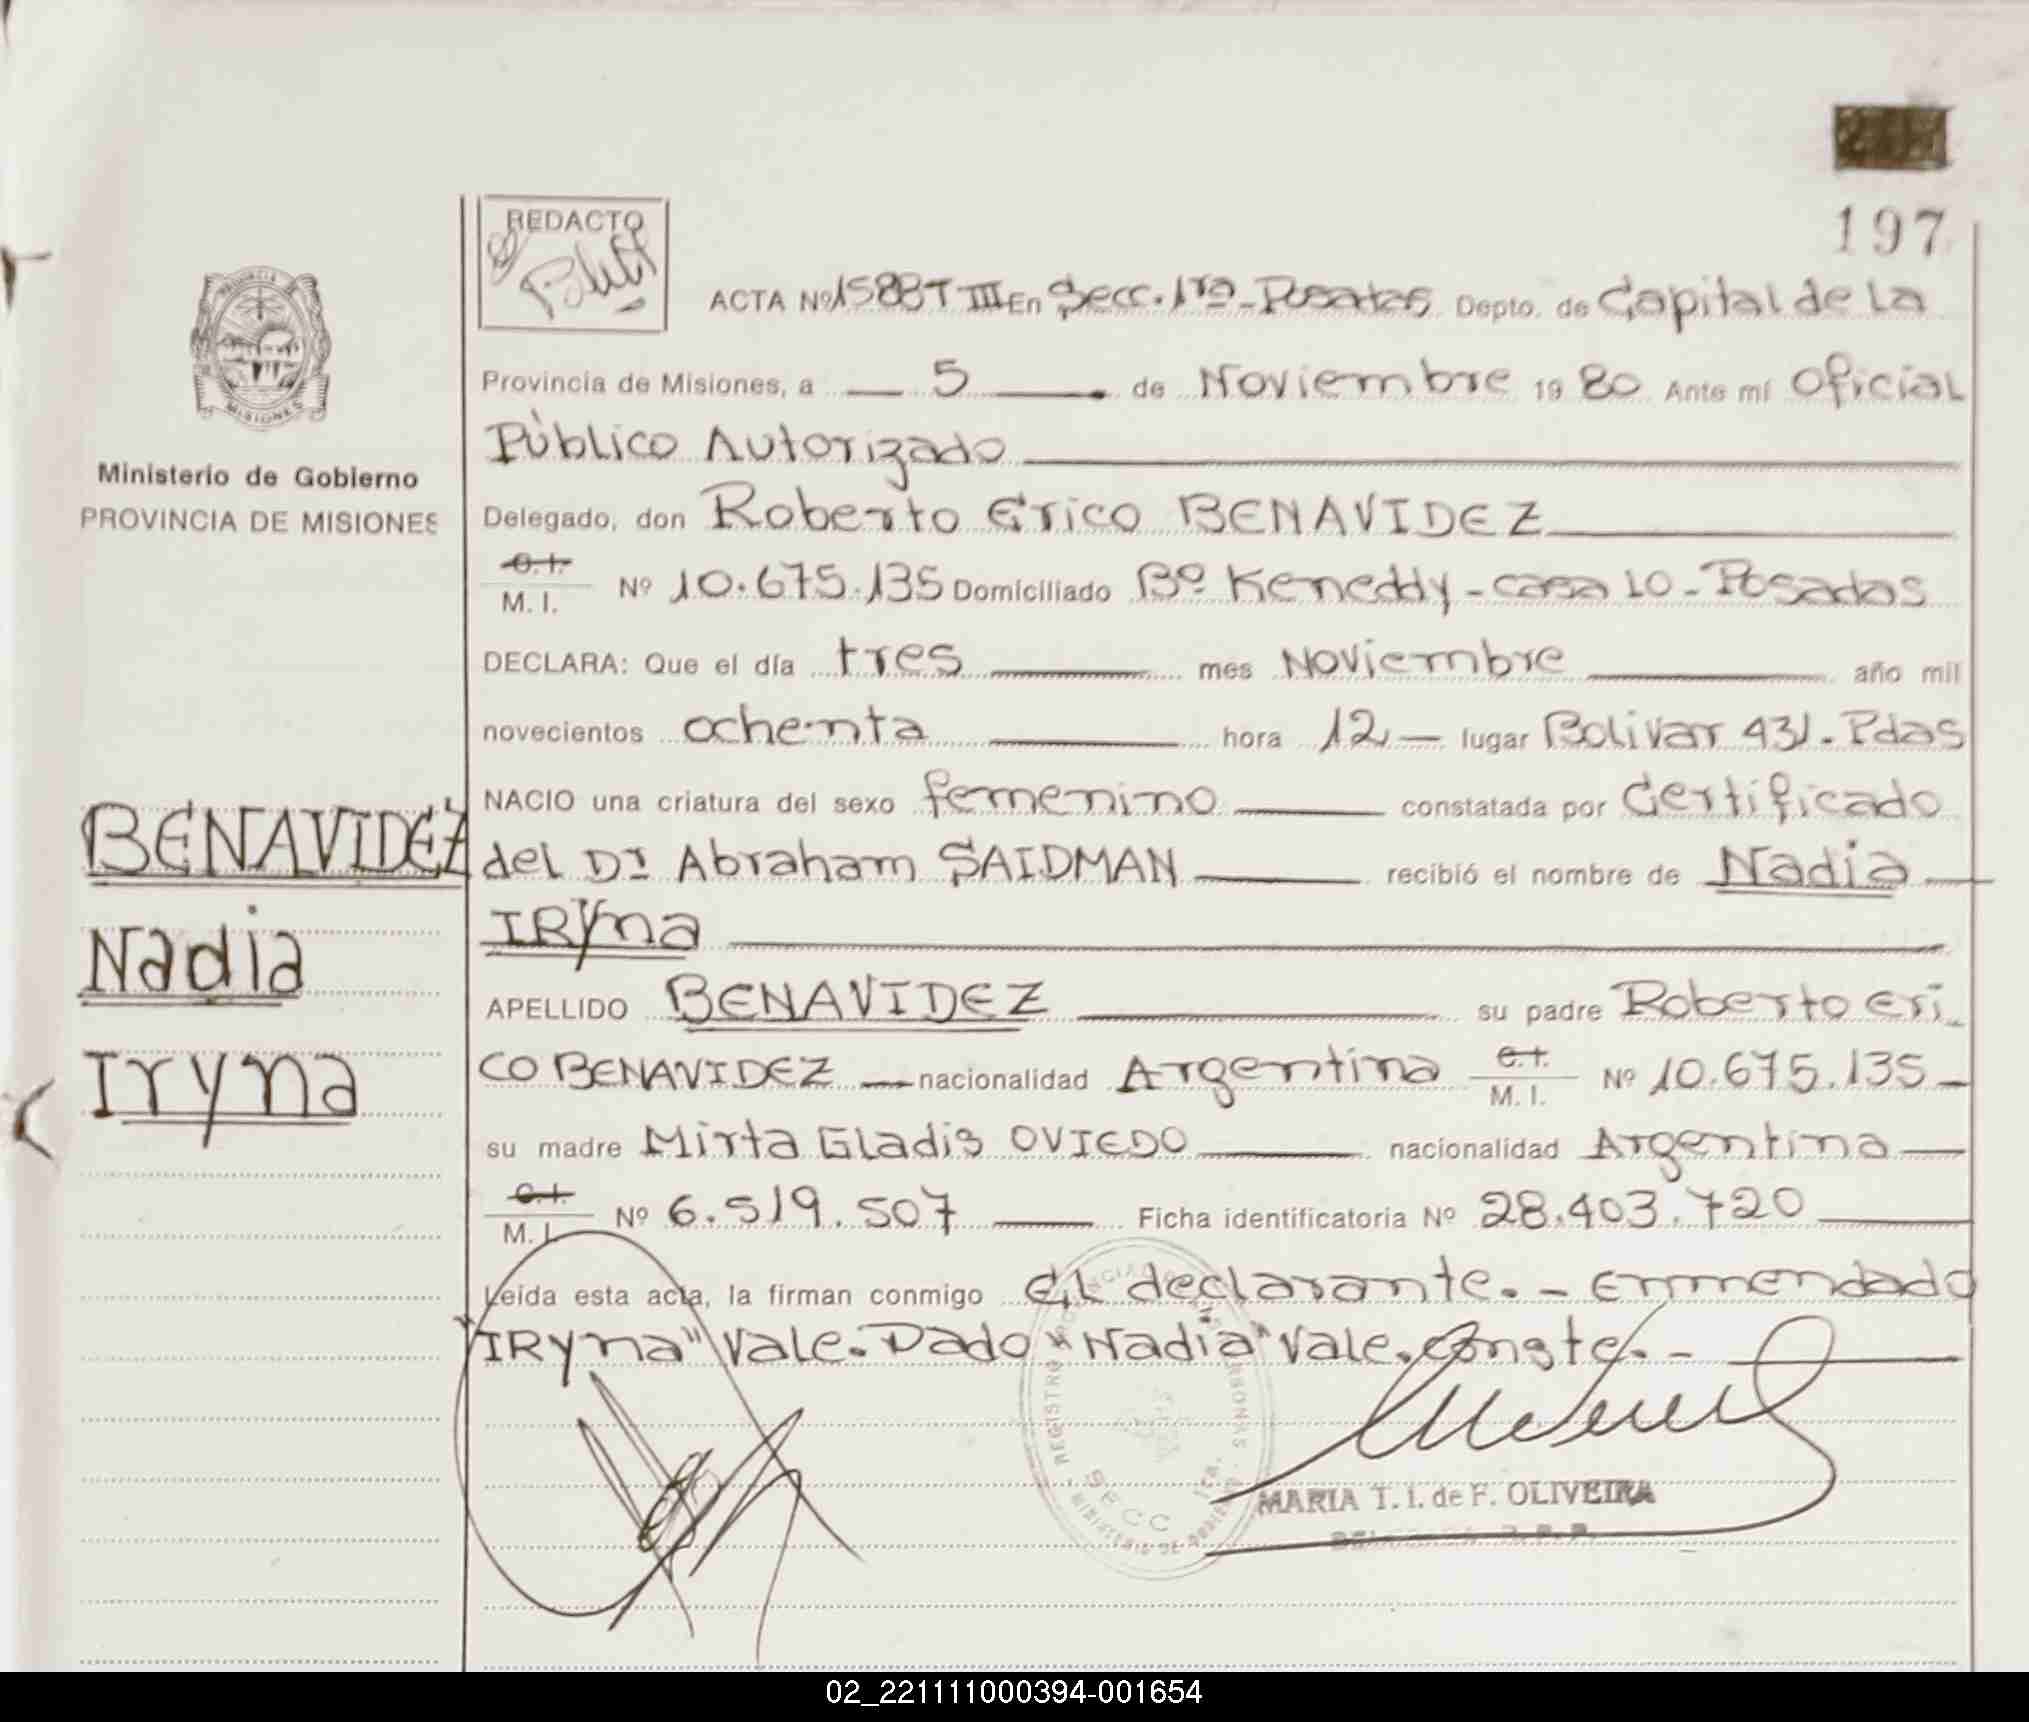 197
REDACTO
ACTA Nº 1588 T III En Secc. 1ra - Posadas Depto. de Capital de La
Provincia de Misiones, a 5 de Noviembre 19 80 Ante mí Oficial
Público Autorizado
Delegado, don Roberto Erico BENAVIDEZ
C.I.
M. I. Nº 10.675.135 Domiciliado Bº Keneddy - casa 10 - Posadas
DECLARA: Que el día tres mes Noviembre año mil
novecientos ochenta hora 12 - lugar Bolivar 431 - Pdas
NACIO una criatura del sexo femenino constatada por Certificado
del Dr Abraham SAIDMAN recibió el nombre de Nadia
IRyna
APELLIDO BENAVIDEZ su padre Roberto Eri
CO BENAVIDEZ nacionalidad Argentina C.I.
M. I. Nº 10.675.135 -
su madre Mirta Gladis OVIEDO nacionalidad Argentina
C.I.
M. I. Nº 6.519.507 Ficha identificatoria Nº 28.403.720
Leída esta acta, la firman conmigo EL declarante. - Enmendado
"IRyna" Vale. Dado "Nadia" Vale. Conste. -
MARIA T. I. de F. OLIVEIRA
SECC 1ra.
PROVINCIA
MISIONES
Ministerio de Gobierno
PROVINCIA DE MISIONES
BENAVIDEZ
Nadia
Iryna
02_221111000394-001654